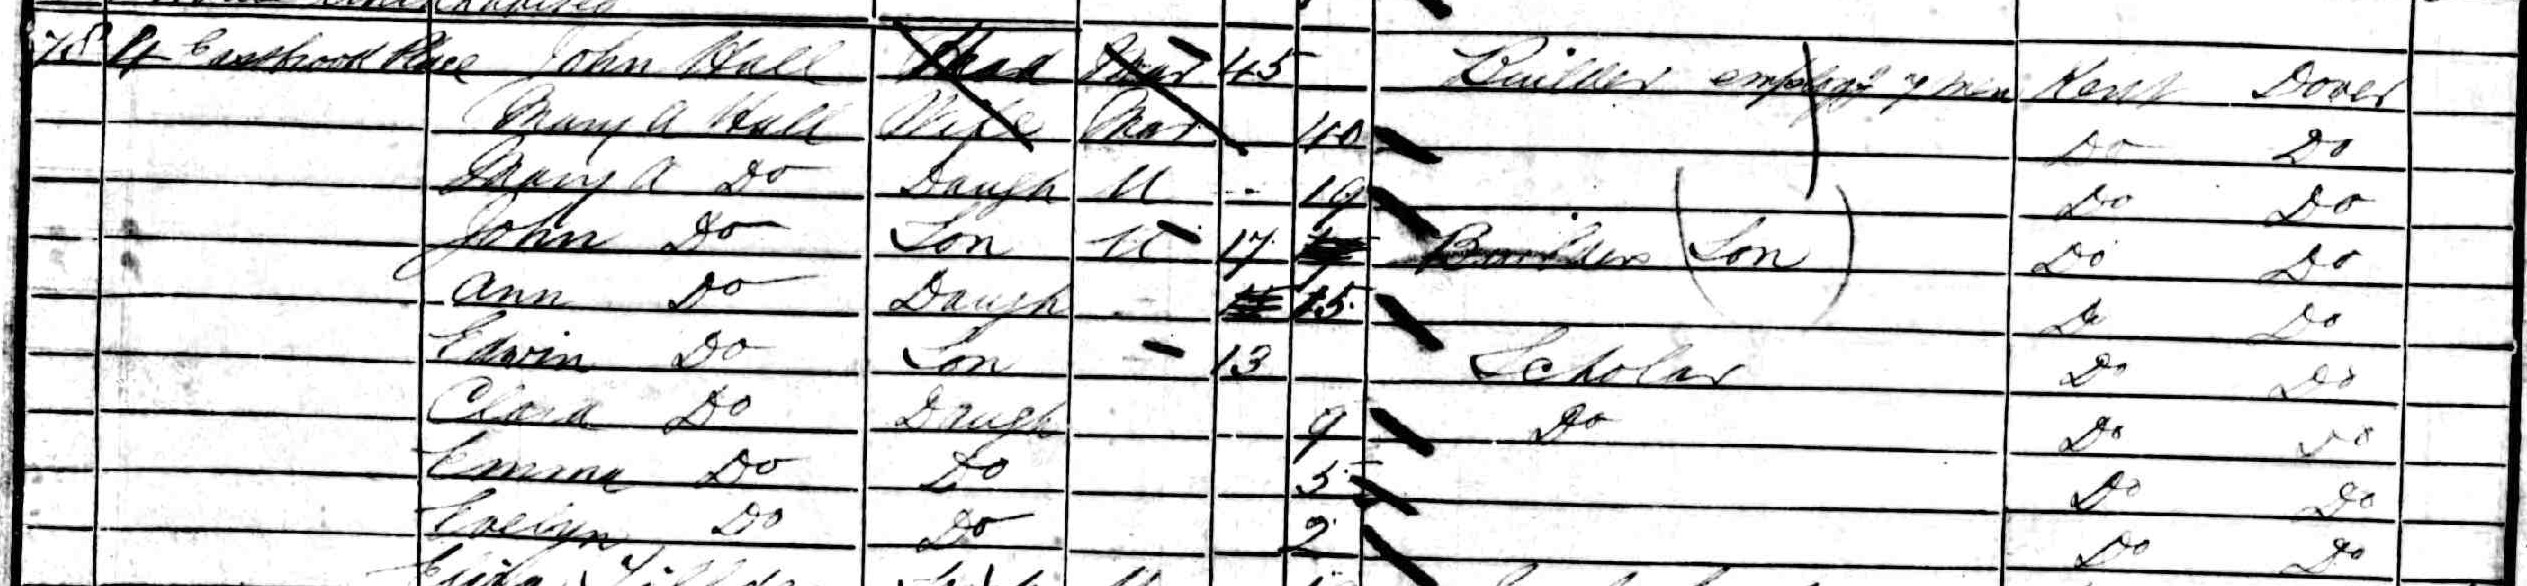 78 4 Eastbrook Place John Hall Head Mar 45 Builder employg 7 men Kent Dover
Mary A Hall Wife Mar 40 Do Do
Mary A Do Daugh U 19 Do Do
John Do Son U 17 Builders Son Do Do
Ann Do Daugh 15 Do Do
Edwin Do Son 13 Scholar Do Do
Clara Do Daugh 9 Do Do Do
Emma Do Do 5 Do Do
Evelyn Do Do 2 Do Do